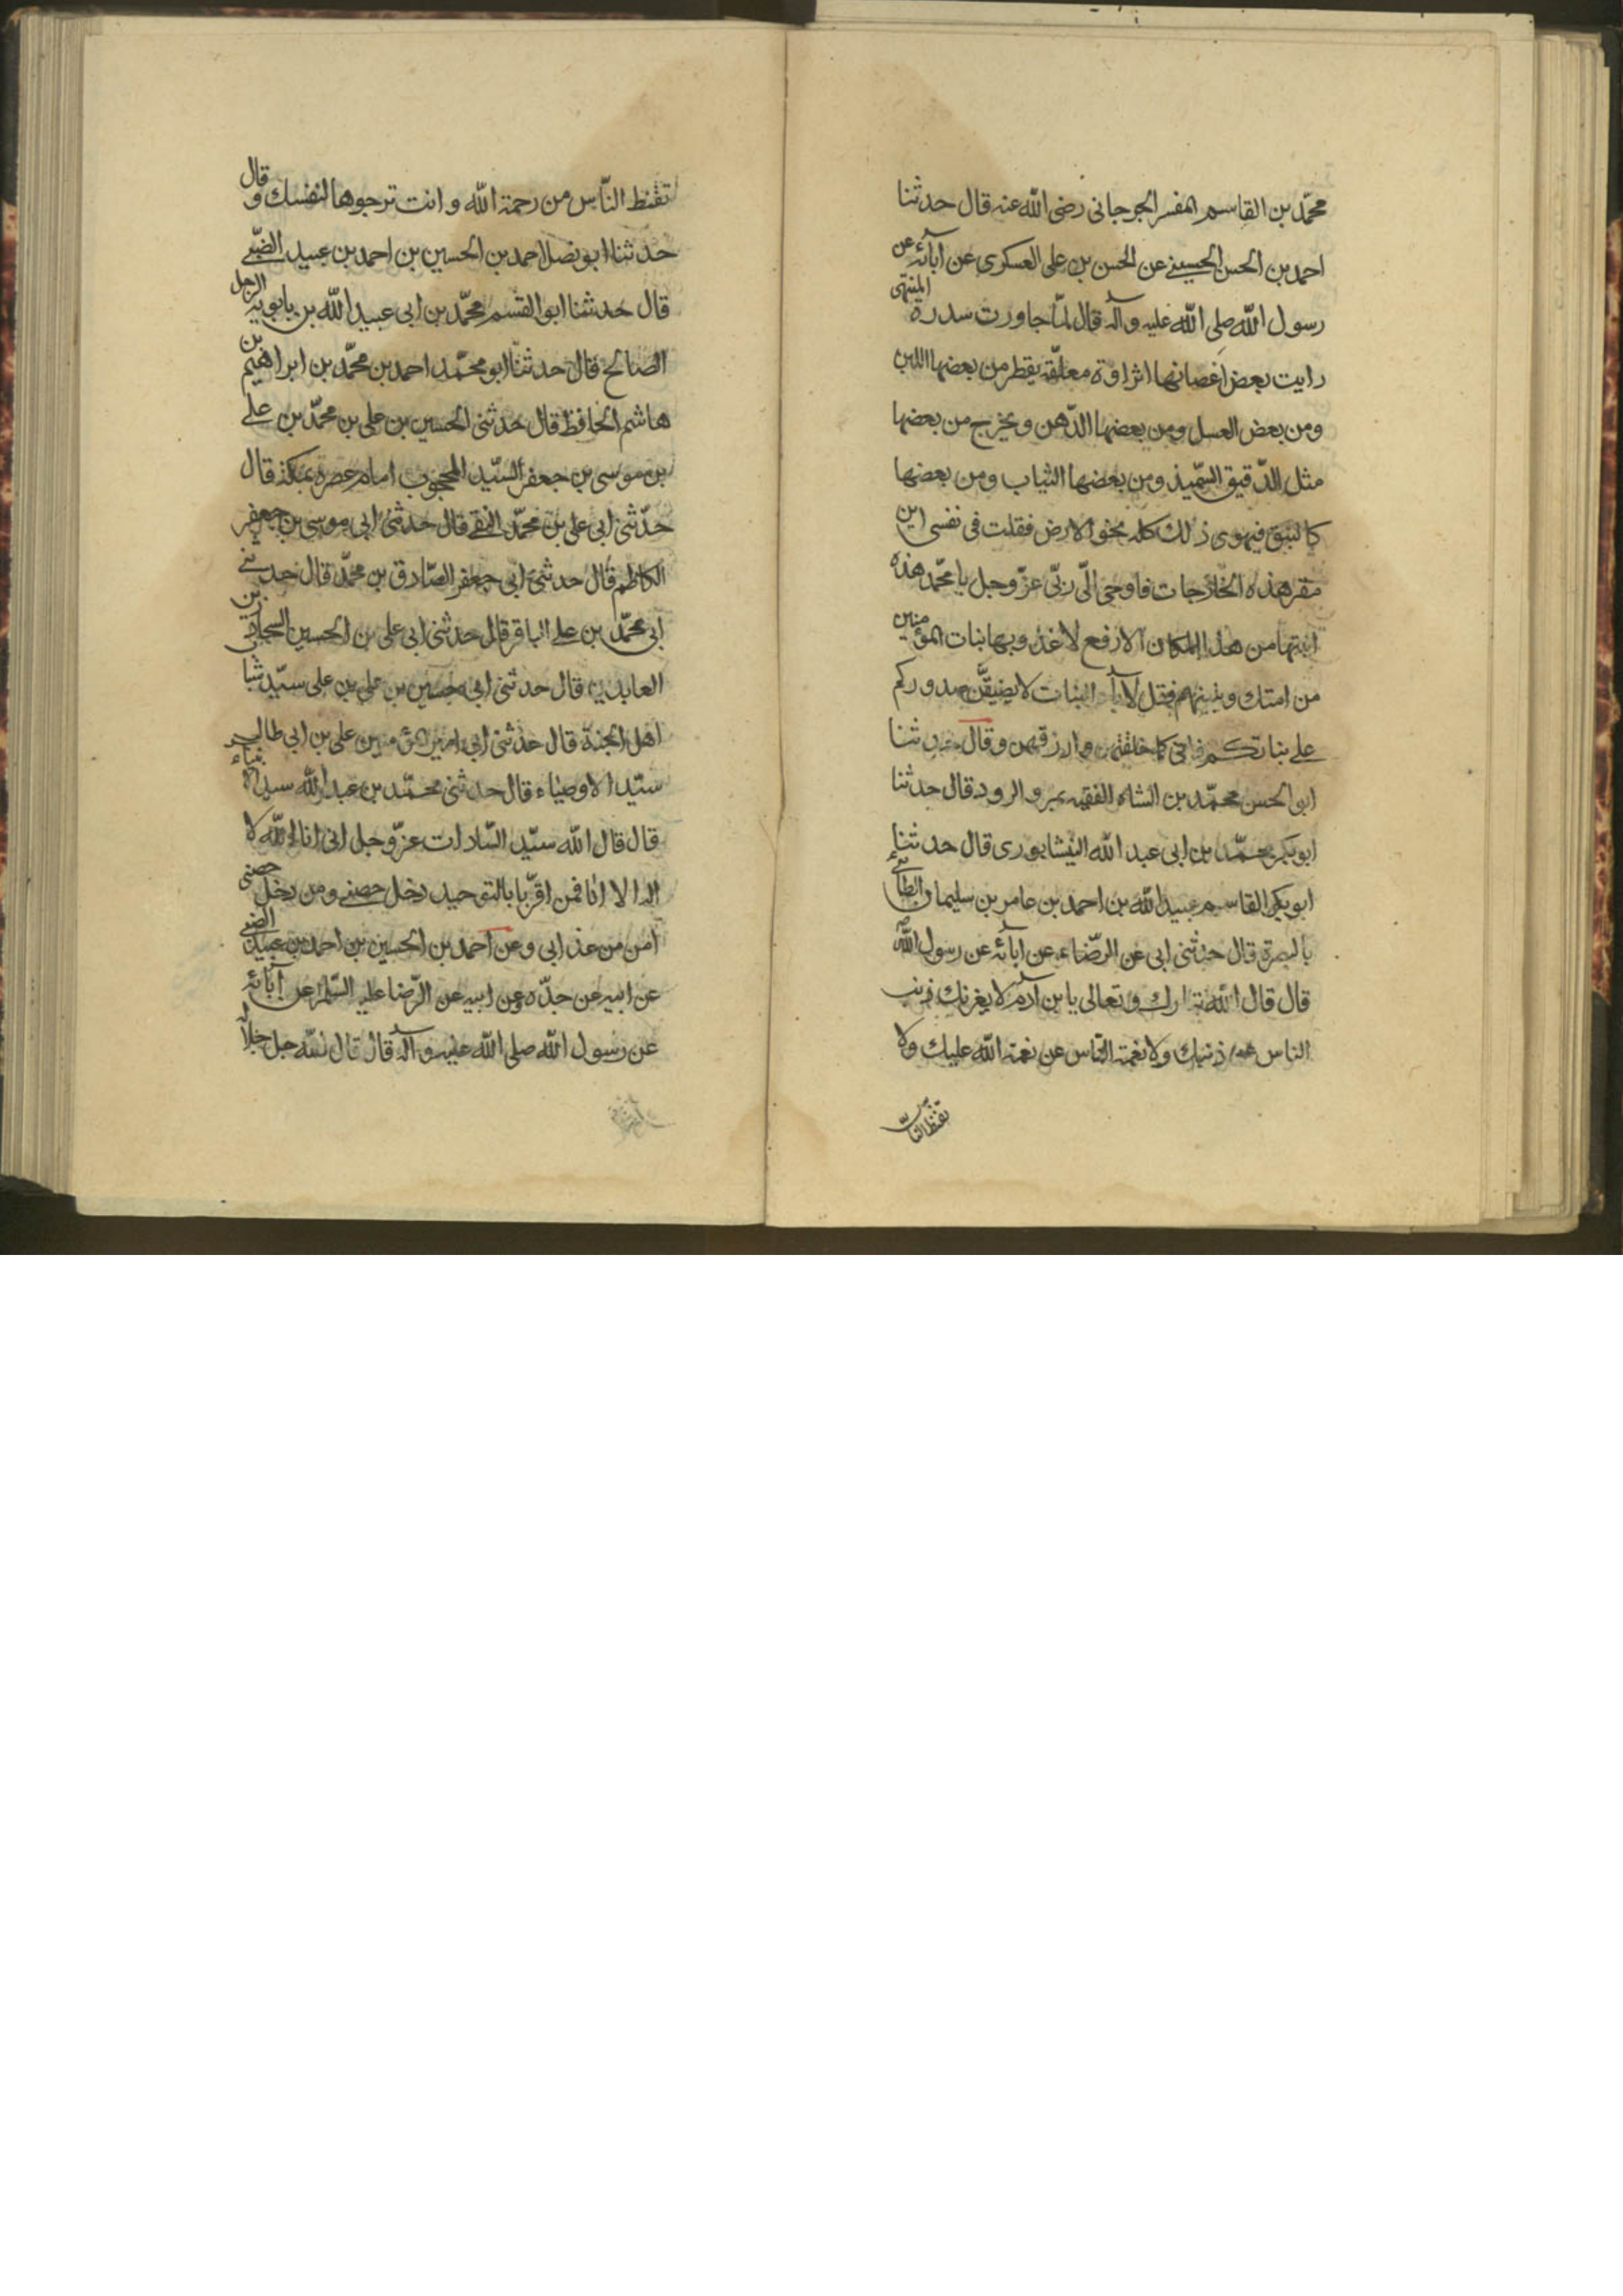 محمّد بن القاسم المفسر الجرجانى رضى الله عنه قال حدثنا
احمد بن الحسن الحسينى عن الحسن بن على العسكرى عن آبائه عن
رسول الله صلى الله عليه وآله قال لمّا جاورت سدرة المنتهى
رايت بعض اغصانها اثداوة معلّقة يقطر من بعضها اللبن
ومن بعض العسل ومن بعضها الدّهن ويخرج من بعضها
مثل الدّقيق السّميذ ومن بعضها الثياب ومن بعضها
كالنبق فيهوى ذلك كله نحو الارض فقلت فى نفسى اين
مقر هذه الخارجات فاوحى الىّ ربّى عزّ وجل يا محمّد هذه
انبتها من هذا المكان الارفع لاغذو بها بنات المؤمنين
من امتك وبنيهم فقل لآباء البنات لا يضيقّن صدوركم
على بناتكم فانى كما خلقتهن ارزقهن وقال حدثنا
ابو الحسن محمّد بن الشاه الفقيه بمرو الرود قال حدثنا
ابو بكر محمّد بن ابى عبد الله النيشابورى قال حدثنا
ابو بكر القاسم عبيد الله بن احمد بن عامر بن سليمان الطائى
بالبصرة قال حدثنى ابى عن الرّضاء عن آبائه عن رسول الله ص
قال قال الله تبارك وتعالى يا بن آدم لا يغرنك ذنب
الناس عن ذنبك ولا نعمة النّاس عن نعمة الله عليك ولا
تقنط الناس
تقنط النّاس من رحمة الله وانت ترجوها لنفسك وقال
حدثنا ابو نصر احمد بن الحسين بن احمد بن عبيد الضبّى
قال حدثنا ابو القسم محمّد بن ابى عبيد الله بن بابويه الرجل
الصالح قال حدثنا ابو محمّد احمد بن محمّد بن ابراهيم بن
هاشم الحافظ قال حدثنى الحسين بن على بن محمّد بن على
بن موسى بن جعفر السيّد المحجوب امام عصره بمكة قال
حدّثنى ابى على بن محمّد النقى قال حدثنى ابى موسى بن جعفر
الكاظم قال حدثنى ابى جعفر الصّادق بن محمّد قال حدثنى
ابى محمّد بن على الباقر قال حدثنى ابى على بن الحسين السجاد زين
العابدين قال حدثنى ابى حسين بن على بن على سيّد شبا
اهل الجنة قال حدثنى ابى امير المؤمنين على بن ابى طالب
سيّد الاوصياء قال حدثنى محمّد بن عبد الله سيد الانبياء
قال قال الله سيّد السّادات عزّ وجل انى انا الله لا
اله الا انا فمن اقرّ با بالتوحيد دخل حصنى ومن دخل حصنى
امن من عذابى وعن احمد بن الحسين بن احمد بن عبيد الضبى
عن ابيه عن جدّه وعن ابيه عن الرّضا عليه السّلم عن آبائه
عن رسول الله صلى الله عليه وآله قال قال الله جل جلاله